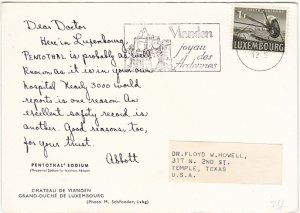 Dear Doctor
Here in Luxembourg,
PENTOTHAL is probably as well
known as it is in your own
hospital. Nearly 3000 world
reports is one reason. An
excellent safety record is
another. Good reasons, too,
for your trust.
Abbott
PENTOTHAL® SODIUM
(Thiopental Sodium for Injection, Abbott)
CHATEAU DE VIANDEN
GRAND-DUCHÉ DE LUXEMBOURG
(Photo. M. Schifonder, Luxbg)
Vianden
joyau
des
Ardennes
1F
LUXEMBOURG
DR. FLOYD W. HOWELL,
317 N. 2ND ST.
TEMPLE, TEXAS
U.S.A.